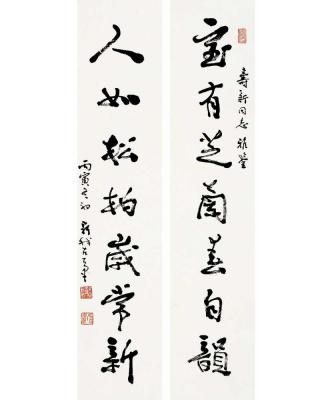 室有芝兰春自韵
寿新同志雅鉴
人如松柏岁常新
丙寅冬初